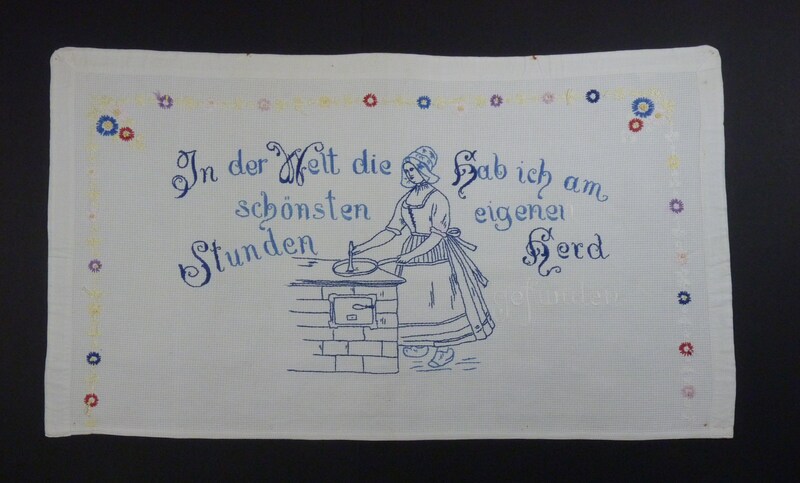 In der Welt die
schönsten
Stunden
Hab ich am
eigenen
Herd
gefunden